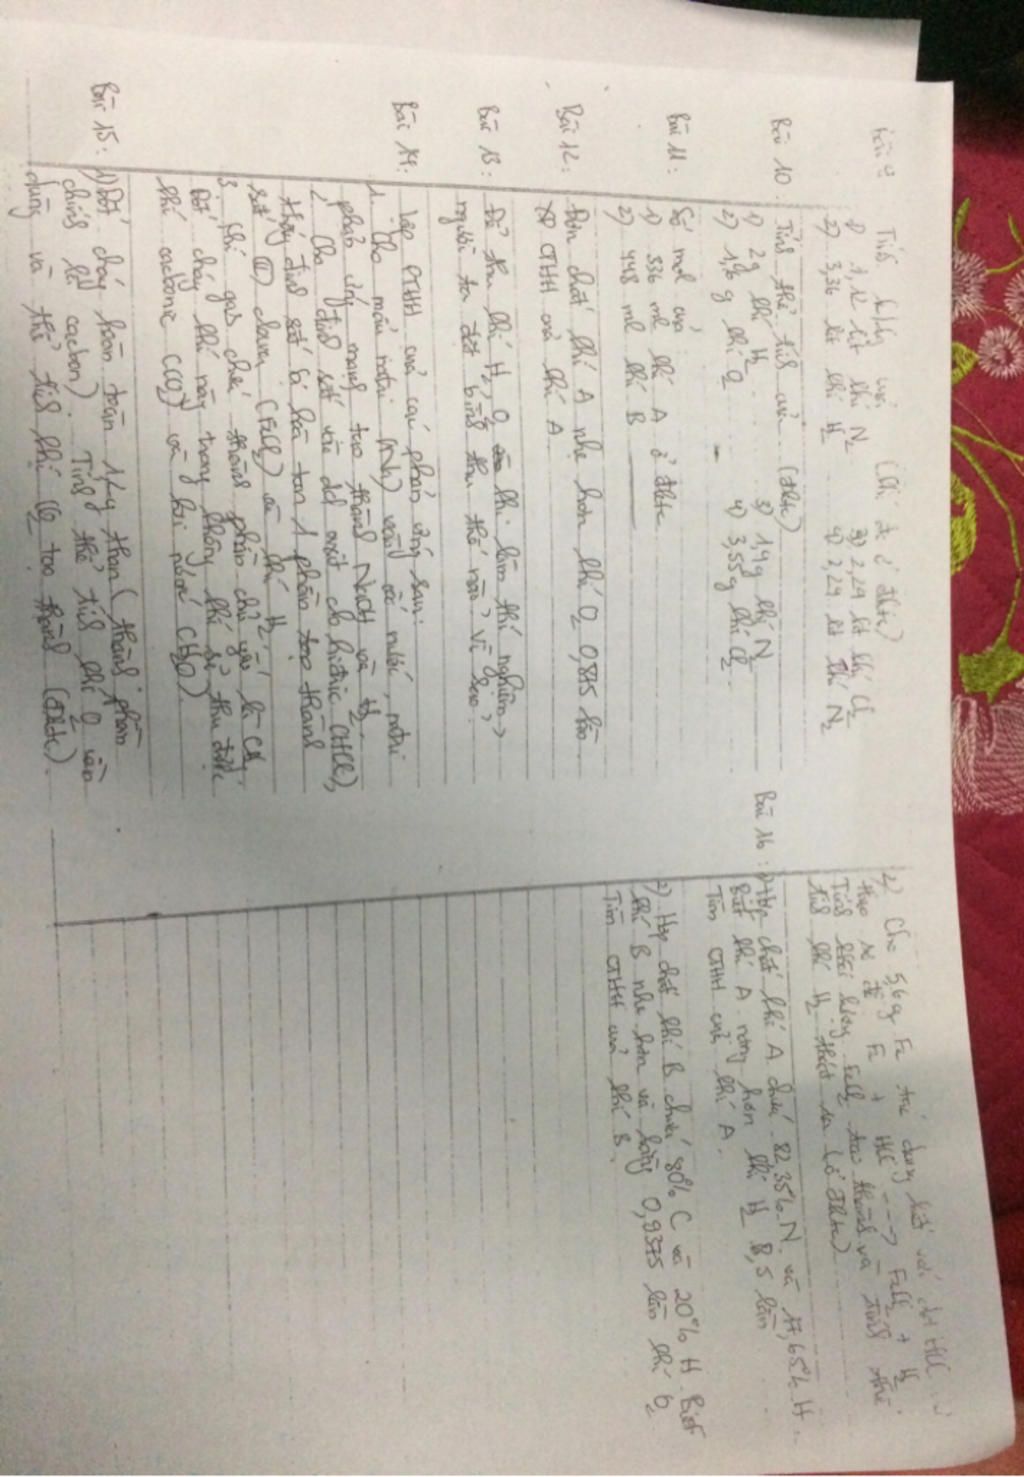 Bài 9 Tính k/lg của (khí đo ở đktc)
1) 1,12 lít khí N2 3) 2,24 lít khí Cl2
2) 3,36 lít khí H2 4) 2,24 lít khí N2
Bài 10. Tính thể tích của (đktc)
1) 2g khí H2 3) 1,4g khí N2
2) 1,6 g khí O2 4) 3,55g khí Cl2
Bài 11: Số mol của
1) 336 ml khí A ở đktc
2) 448 ml khí B
Bài 12: Đơn chất khí A nhẹ hơn khí O2 0,875 lần
XĐ CTHH của khí A
Bài 13: Để thu khí H2, O2 khi làm thí nghiệm,
người ta đặt bình thu thế nào? Vì sao?
Bài 14: Lập PTHH của các phản ứng sau:
1. Cho mẩu natri (Na) vào cốc nước, natri
phản ứng mạnh tạo thành NaOH và H2
2 Cho đinh sắt vào dd axit clohidric (HCl),
thấy đinh sắt bị hòa tan 1 phần tạo thành
sắt (II) clorua (FeCl2) và khí H2
3 Khí gas chứa thành phần chủ yếu là CH4.
Đốt cháy khí này trong không khí sẽ thu được
khí cacbonic (CO2) và hơi nước (H2O).
Bài 15: 1) Đốt cháy hoàn toàn than (thành phần
chính là cacbon). Tính thể tích khí O2 cần
dùng và thể tích khí CO2 tạo thành (đktc).
2) Cho 5,6g Fe tác dụng hết với dd HCl
theo sơ đồ Fe + HCl ---> FeCl2 + H2.
Tính khối lượng FeCl2 tạo thành và tính thể
tích khí H2 thoát ra (ở đktc)
Bài 16: 1) Hợp chất khí A chứa 82,35% N và 17,65% H.
Biết khí A nặng hơn khí H2 8,5 lần
Tìm CTHH của khí A.
2) Hợp chất khí B chứa 80% C và 20% H. Biết
khí B nhẹ hơn và bằng 0,9375 lần khí O2
Tìm CTHH của khí B.